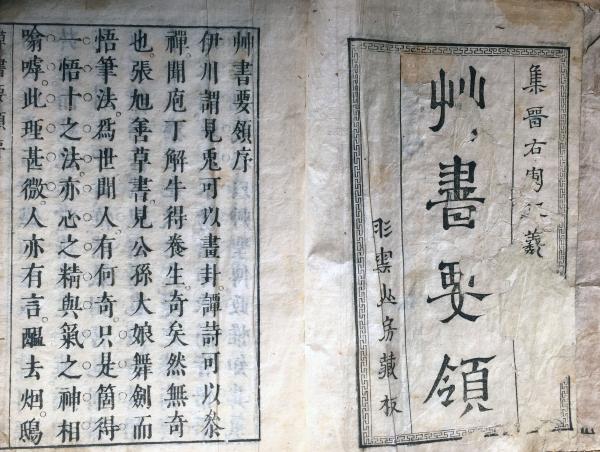 集晉右軍王羲
艸書要領
彤雲山房藏板
艸書要領序
伊川謂見兎可以畫卦譚詩可以叅
禪聞庖丁解牛得養生奇矣然無奇
也張旭善草書見公孫大娘舞劍而
悟筆法爲世間人有何奇只是箇得
一悟十之法亦心之精與氣之神相
喻嘑此理甚微人亦有言醞去烟鴟
草書要領序